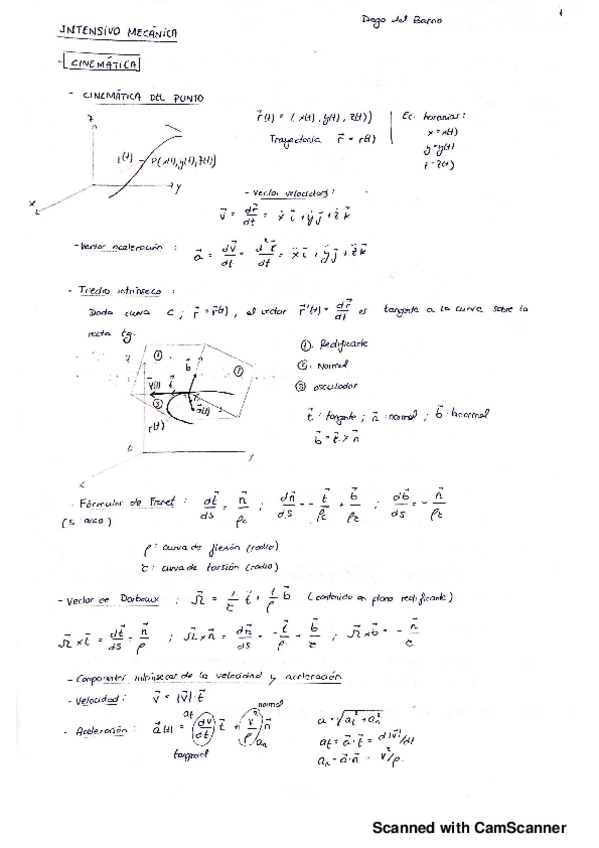 Diego del Barrio
1
INTENSIVO MECÁNICA
- CINEMÁTICA
- CINEMÁTICA DEL PUNTO
z
r(t) P(x(t), y(t), z(t))
x
y
r⃗(t) = (x(t), y(t), z(t))
Trayectoria r⃗ = r(t)
Ec. horarias:
x = x(t)
y = y(t)
z = z(t)
- Vector velocidad:
v⃗ = dr⃗/dt = ẋ i⃗ + ẏ j⃗ + ż k⃗
- Vector aceleración : a⃗ = dv⃗/dt = d²r⃗/dt = ẍ i⃗ + ÿ j⃗ + z̈ k⃗
- Triedro intrínseco :
Dada curva C ; r⃗ = r⃗(t) , el vector r⃗'(t) = dr⃗/dt es tangente a la curva sobre la
recta tg.
① ② ③
v⃗(t) t⃗ b⃗ a⃗(t)
r(t)
①. Rectificante
②. Normal
③ osculador
t⃗ : tangente ; n⃗ : normal ; b⃗ : binormal
b⃗ = t⃗ × n⃗
- Fórmulas de Frenet : dt⃗/ds = n⃗/ρc ; dn⃗/ds = - t⃗/ρc + b⃗/ρt ; db⃗/ds = - n⃗/ρt
(s : arco)
ρ : curva de flexión (radio)
τ : curva de torsión (radio)
- Vector de Darboux : Ω⃗ = 1/τ t⃗ + 1/ρ b⃗ (contenido en plano rectificante)
Ω⃗ × t⃗ = dt⃗/ds = n⃗/ρ ; Ω⃗ × n⃗ = dn⃗/ds = - t⃗/ρ + b⃗/τ ; Ω⃗ × b⃗ = - n⃗/τ
- Componentes intrínsecas de la velocidad y aceleración
- Velocidad : v⃗ = |v⃗| · t⃗
- Aceleración : a⃗(t) = dv/dt t⃗ + v²/ρ n⃗
at
normal
an
tangencial
a = √at² + an²
at = a⃗ · t⃗ = d|v⃗|/dt
an = a⃗ · n⃗ = v²/ρ.
Scanned with CamScanner